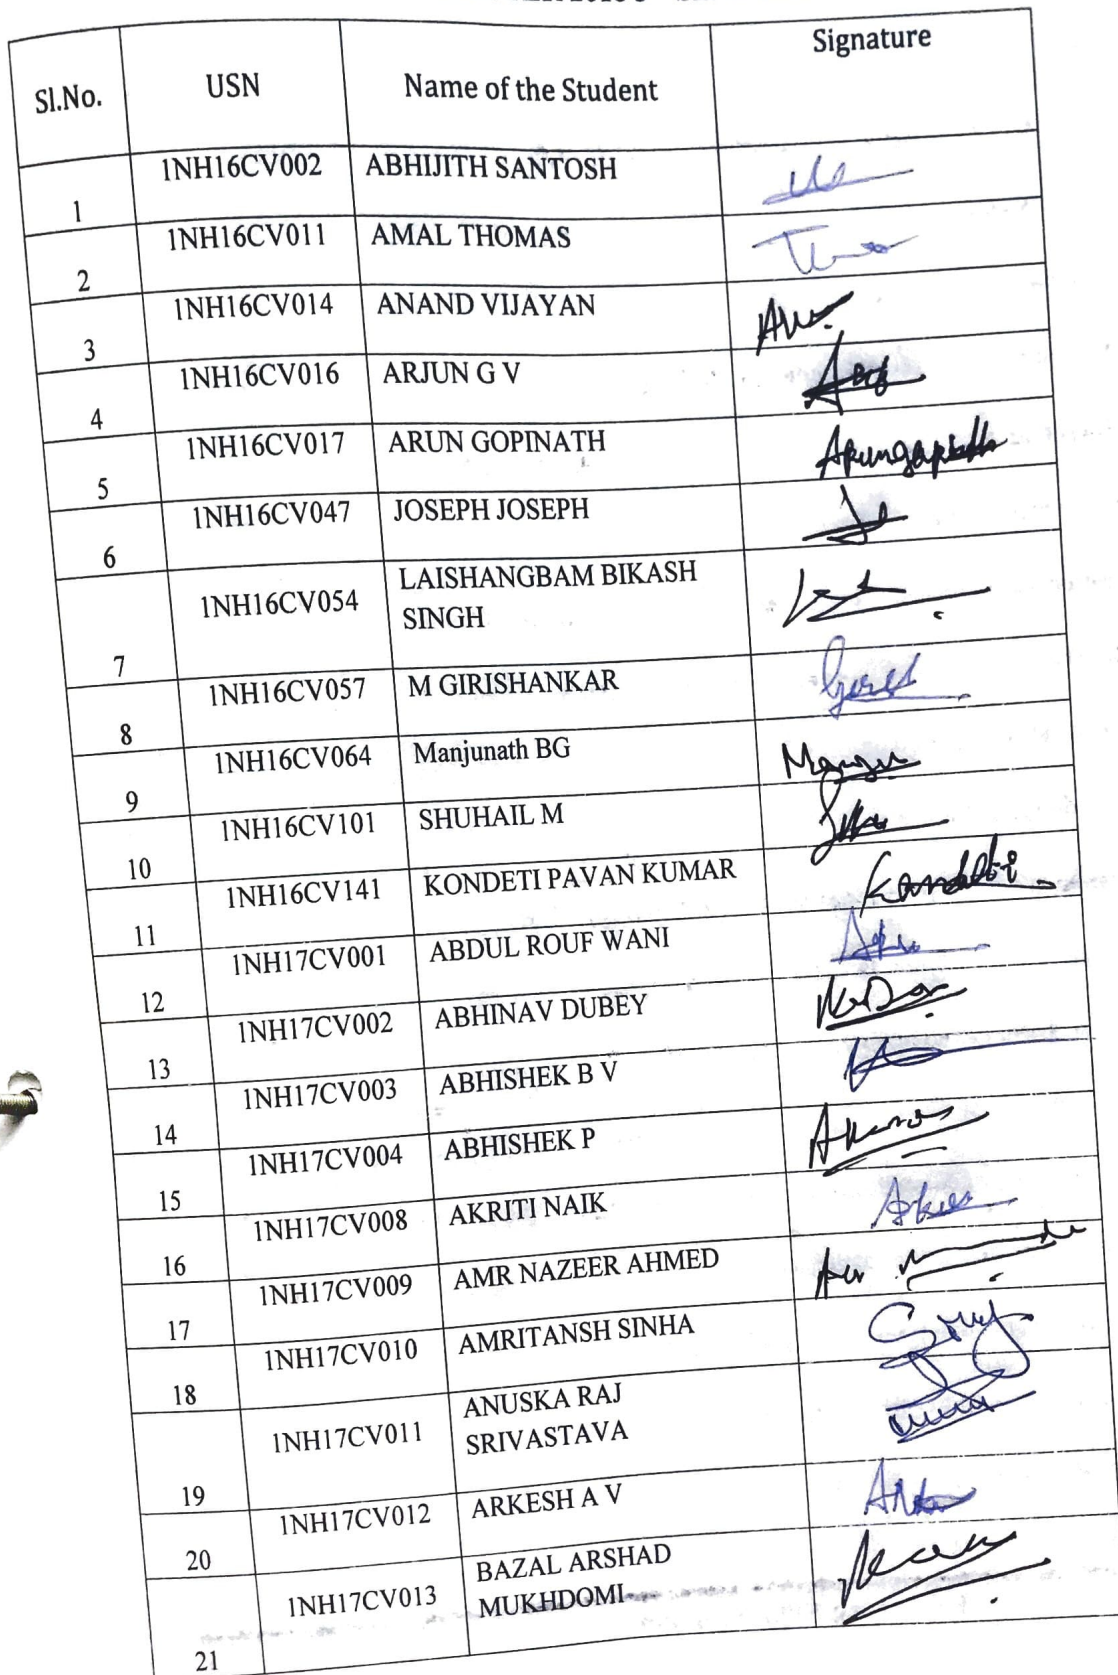 Sl.No. USN Name of the Student Signature
1 1NH16CV002 ABHIJITH SANTOSH
2 1NH16CV011 AMAL THOMAS
3 1NH16CV014 ANAND VIJAYAN
4 1NH16CV016 ARJUN G V
5 1NH16CV017 ARUN GOPINATH
6 1NH16CV047 JOSEPH JOSEPH
7 1NH16CV054 LAISHANGBAM BIKASH
SINGH
8 1NH16CV057 M GIRISHANKAR
9 1NH16CV064 Manjunath BG
10 1NH16CV101 SHUHAIL M
11 1NH16CV141 KONDETI PAVAN KUMAR
12 1NH17CV001 ABDUL ROUF WANI
13 1NH17CV002 ABHINAV DUBEY
14 1NH17CV003 ABHISHEK B V
15 1NH17CV004 ABHISHEK P
16 1NH17CV008 AKRITI NAIK
17 1NH17CV009 AMR NAZEER AHMED
18 1NH17CV010 AMRITANSH SINHA
19 1NH17CV011 ANUSKA RAJ
SRIVASTAVA
20 1NH17CV012 ARKESH A V
21 1NH17CV013 BAZAL ARSHAD
MUKHDOMI